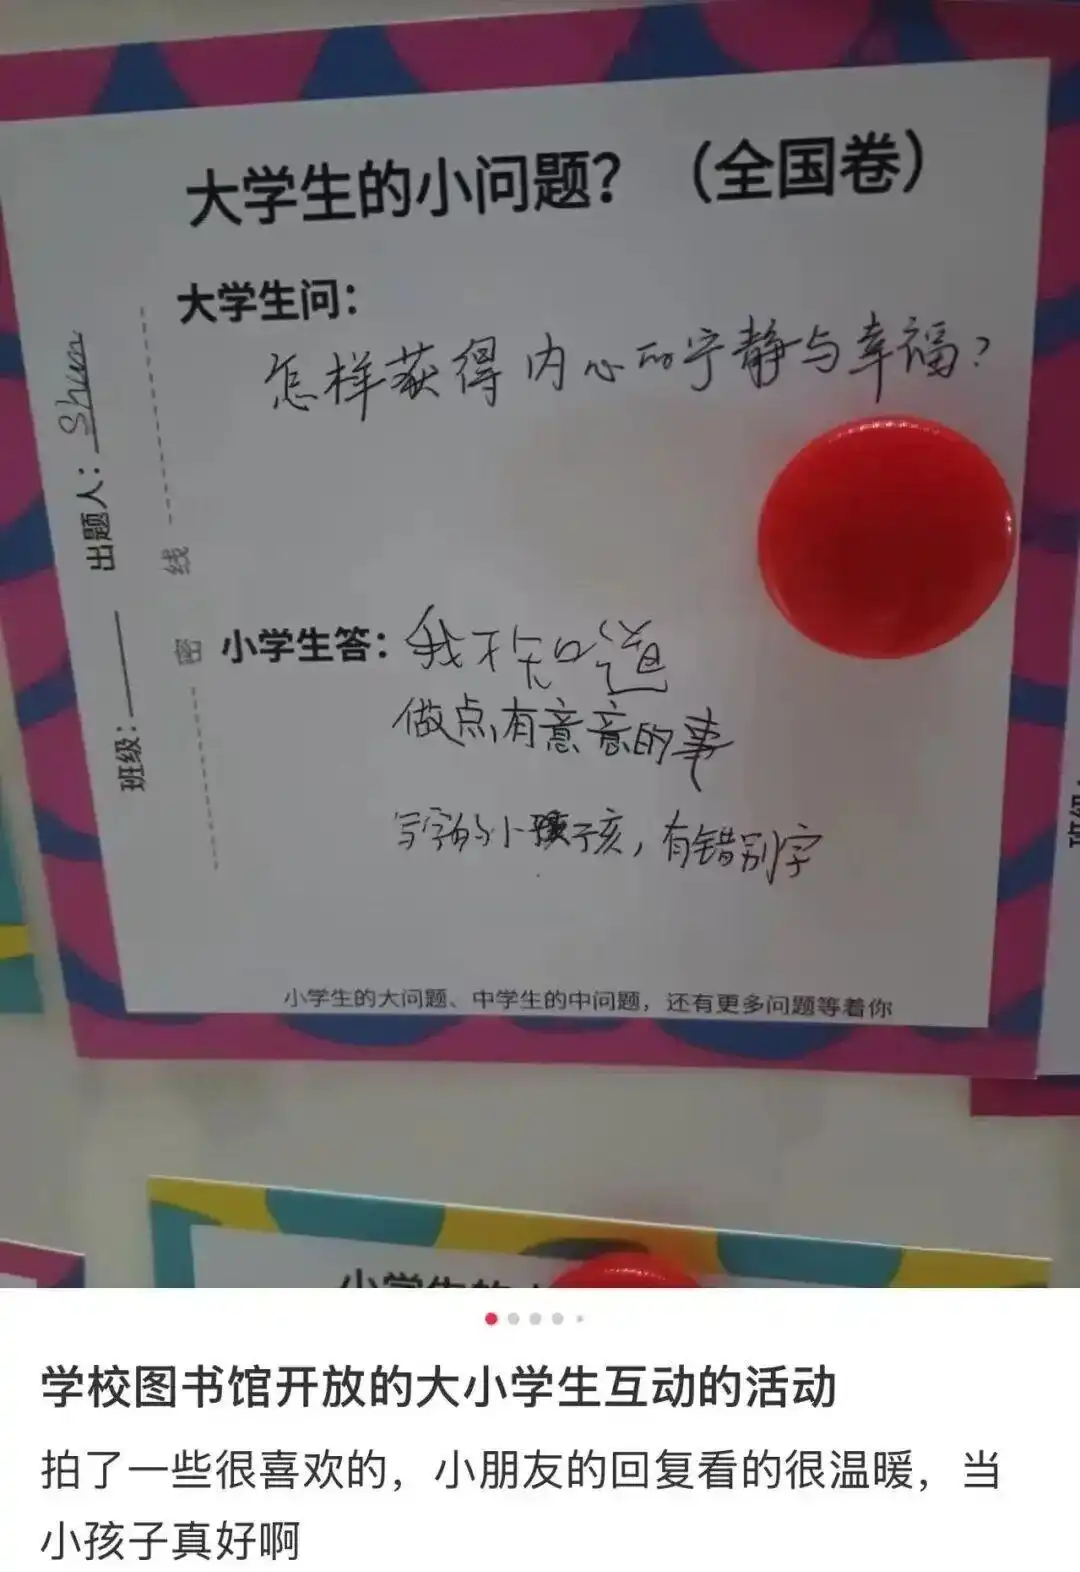 大学生的小问题？（全国卷）
大学生问：
怎样获得内心的宁静与幸福？
出题人：Shun
班级：
密 线
小学生答：我不知道
做点有意意的事
写字的小孩子亥，有错别字
小学生的大问题、中学生的中问题，还有更多问题等着你
学校图书馆开放的大小学生互动的活动
拍了一些很喜欢的，小朋友的回复看的很温暖，当
小孩子真好啊